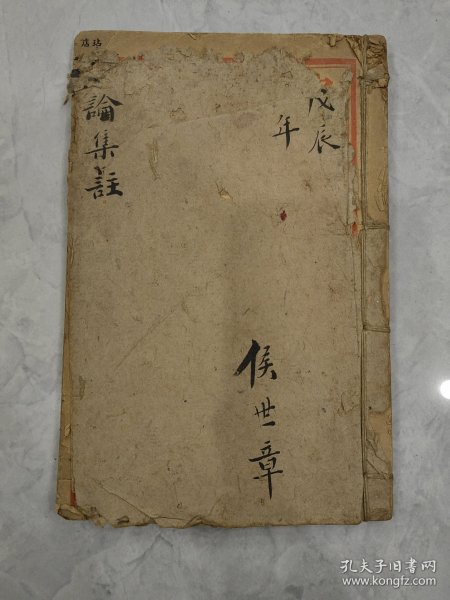 戊辰
年
論集註
侯世章
孔夫子旧书网
www.kongfz.com